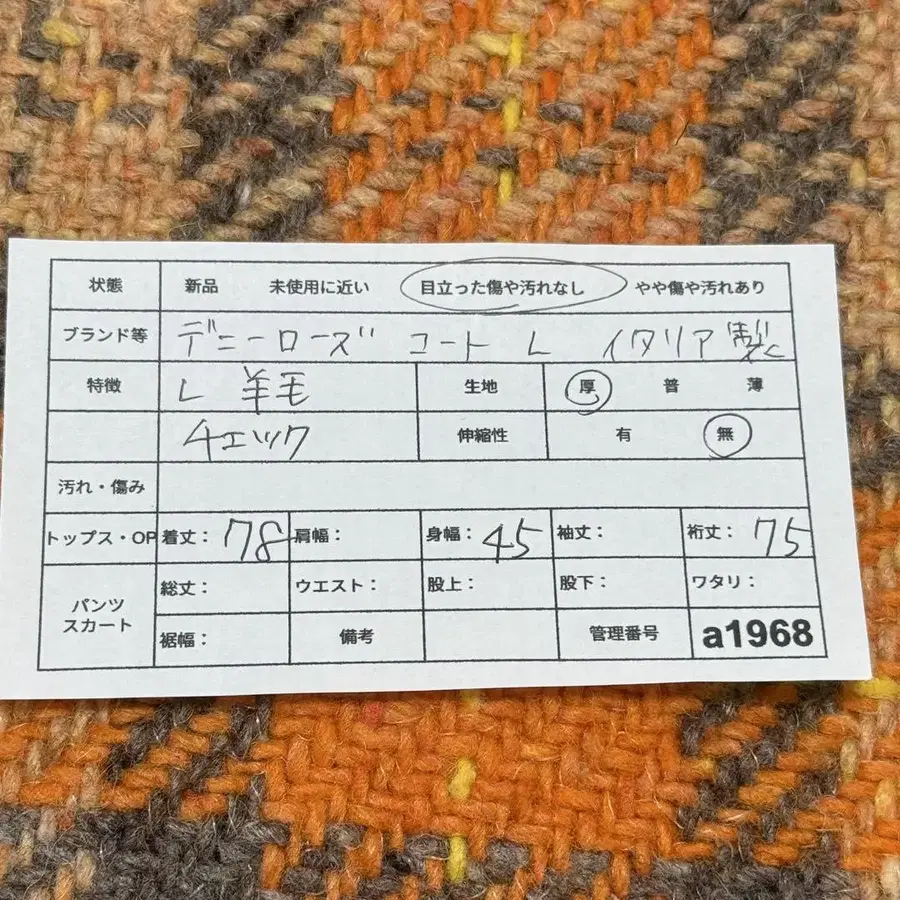 状態 新品 未使用に近い 目立った傷や汚れなし やや傷や汚れあり
ブランド等 デニーローズ コート L イタリア製
特徴 L 羊毛 生地 厚 普 薄
チェック 伸縮性 有 無
汚れ・傷み
トップス・OP 着丈: 78 肩幅: 身幅: 45 袖丈: 裄丈: 75
パンツ スカート 総丈: ウエスト: 股上: 股下: ワタリ:
裾幅: 備考 管理番号 a1968